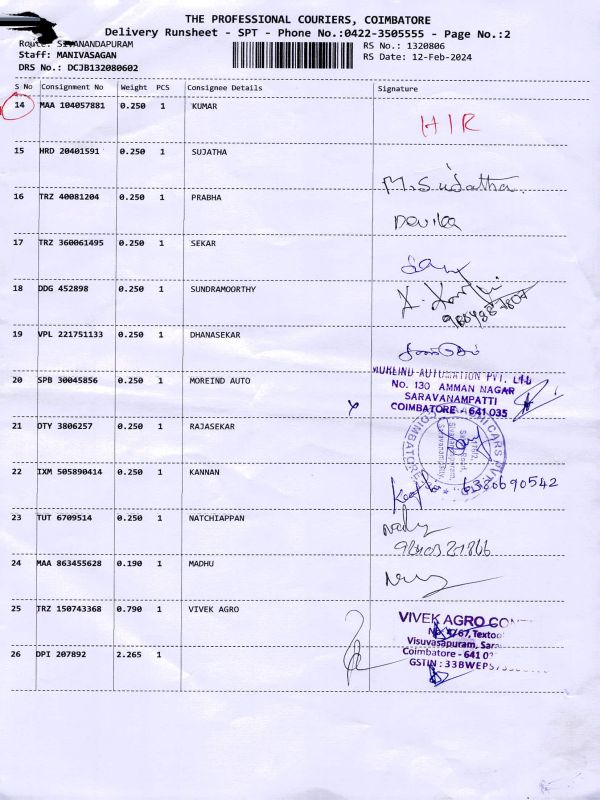 THE PROFESSIONAL COURIERS, COIMBATORE
Delivery Runsheet - SPT - Phone No.:0422-3505555 - Page No.:2
Route: SIVANANDAPURAM
Staff: MANIVASAGAN
DRS No.: DCJB132080602
RS No.: 1320806
RS Date: 12-Feb-2024
S No Consignment No Weight PCS Consignee Details Signature
14 MAA 104057881 0.250 1 KUMAR
HIR
15 HRD 20401591 0.250 1 SUJATHA
M. Sujatha
16 TRZ 40081204 0.250 1 PRABHA
Devika
17 TRZ 360061495 0.250 1 SEKAR
18 DDG 452898 0.250 1 SUNDRAMOORTHY
19 VPL 221751133 0.250 1 DHANASEKAR
20 SPB 30045856 0.250 1 MOREIND AUTO
MOREIND AUTOMATION PVT. LTD
No. 130 AMMAN NAGAR
SARAVANAMPATTI
COIMBATORE - 641 035
21 OTY 3806257 0.250 1 RAJASEKAR
22 IXM 505890414 0.250 1 KANNAN
6320690542
23 TUT 6709514 0.250 1 NATCHIAPPAN
24 MAA 863455628 0.190 1 MADHU
25 TRZ 150743368 0.790 1 VIVEK AGRO
VIVEK AGRO
Visuvasapuram,
Coimbatore - 641
GSTIN : 33BWEPS
26 DPI 207892 2.265 1